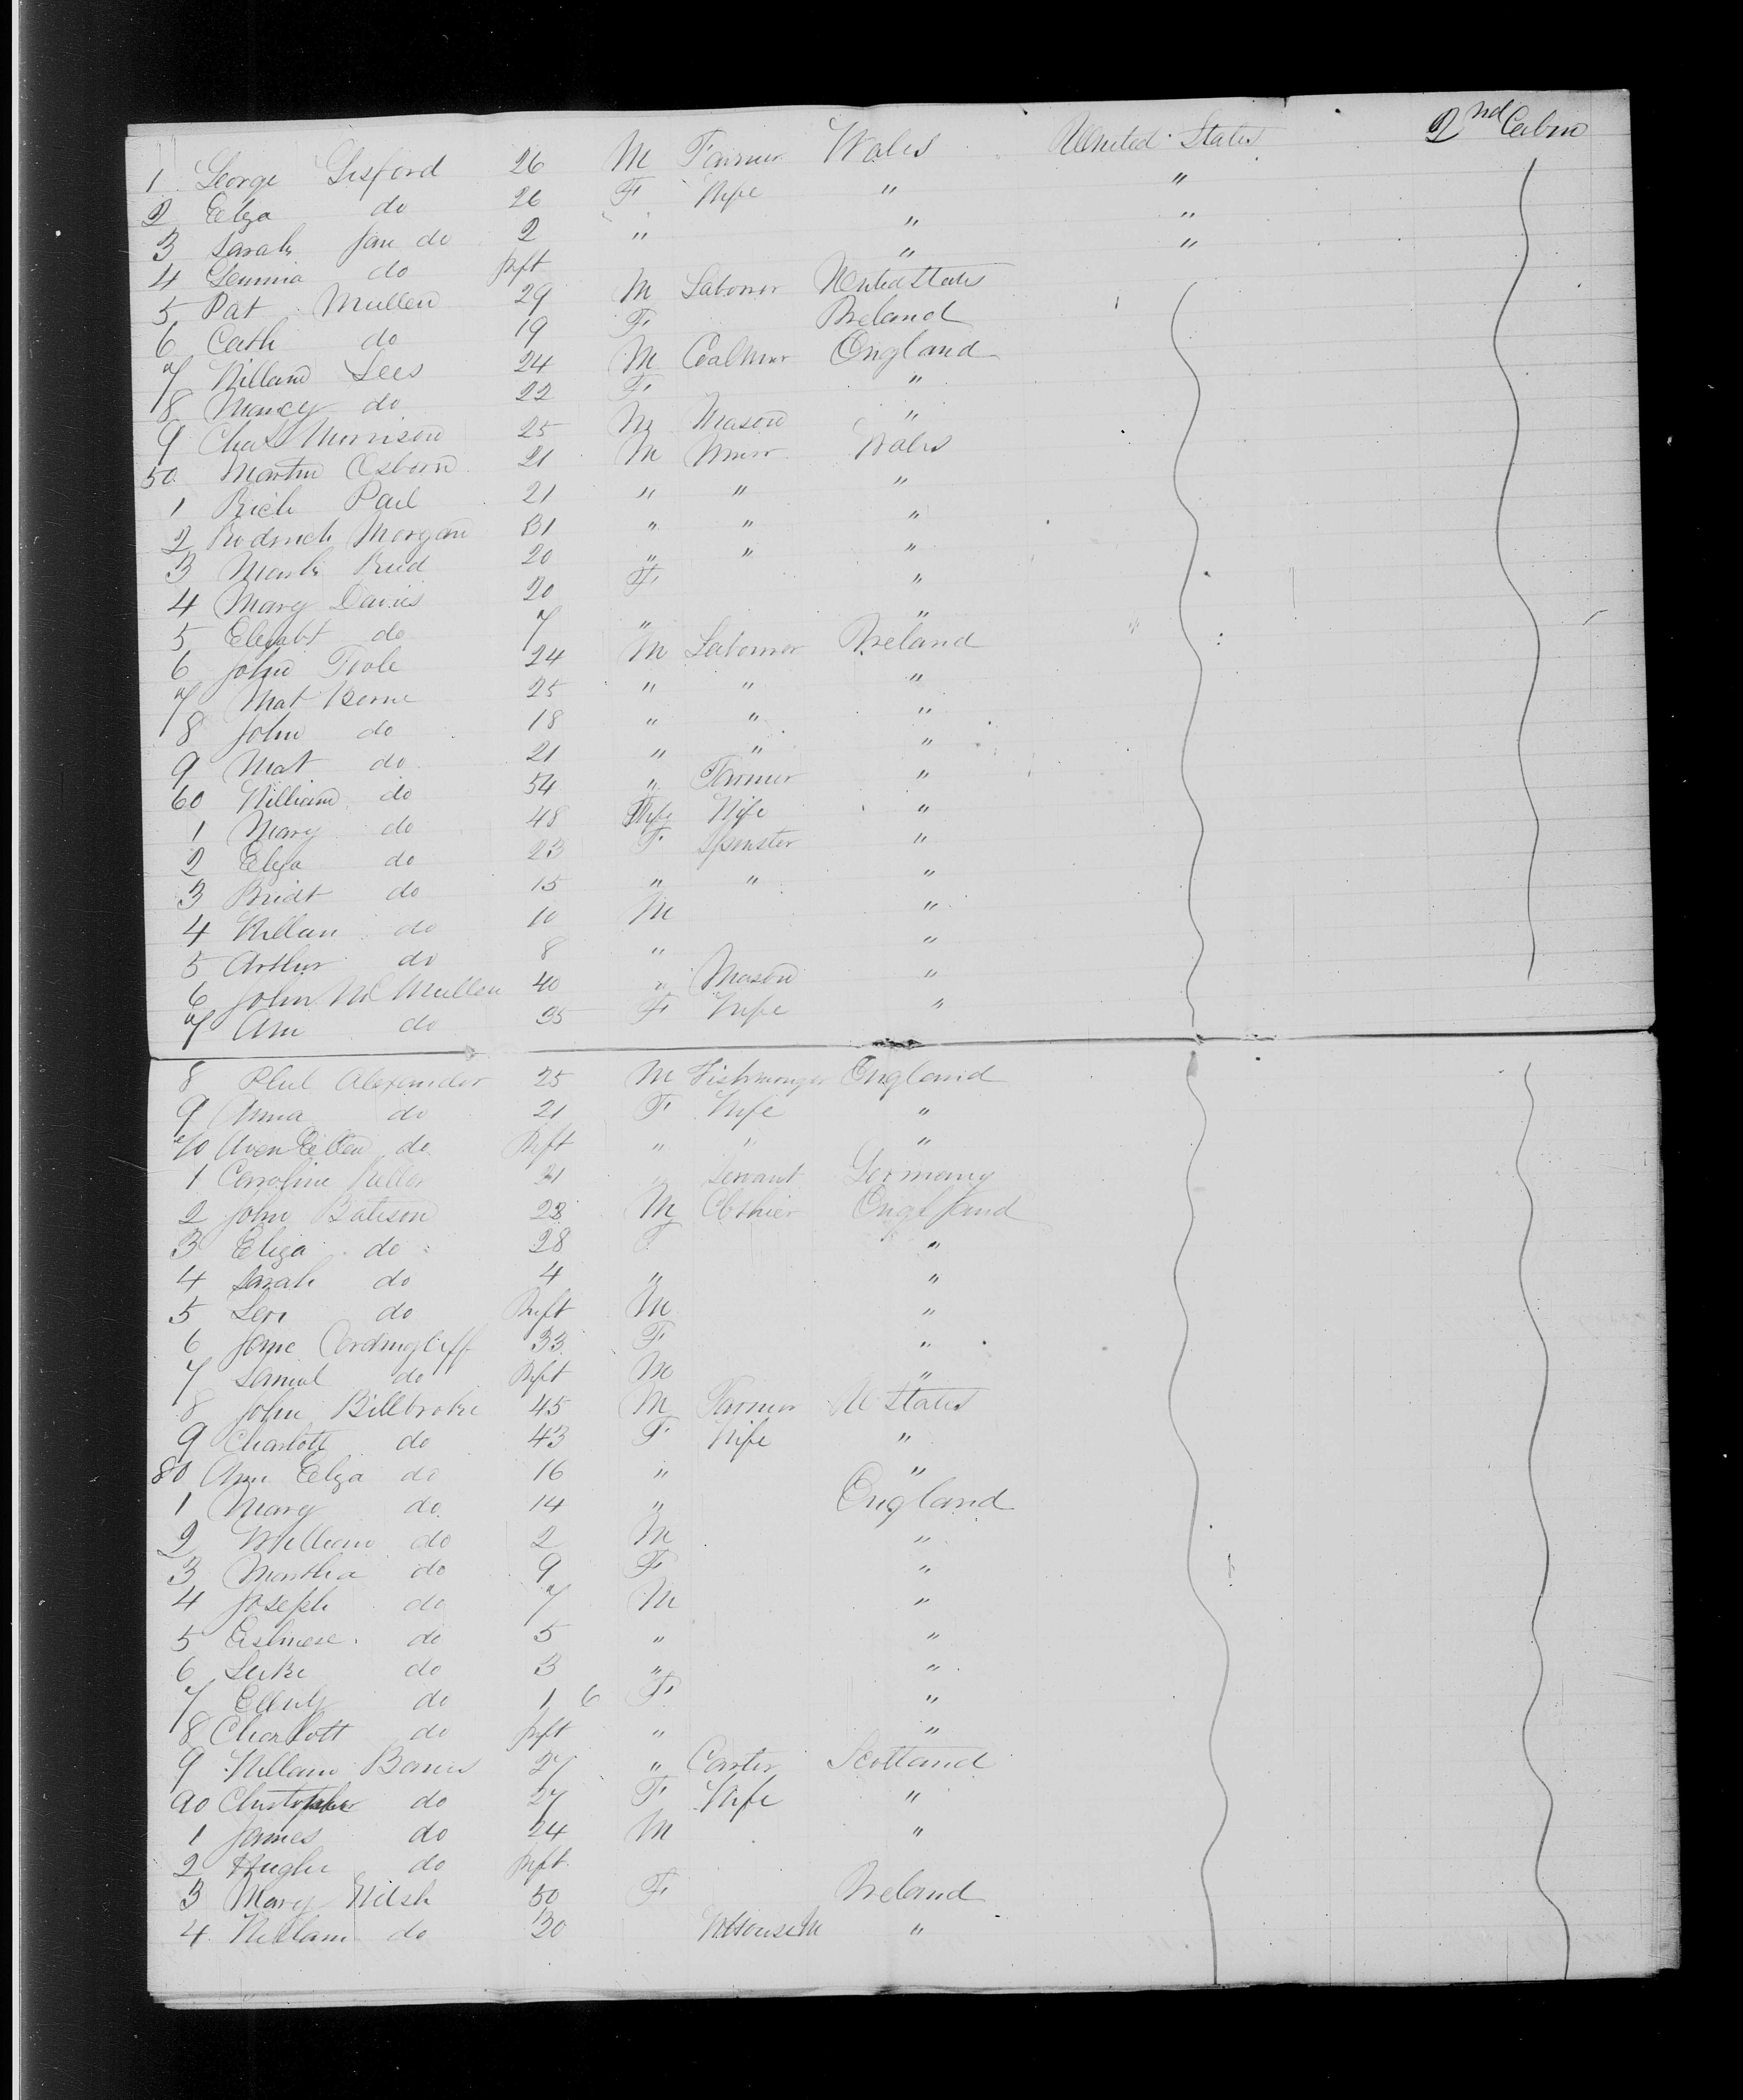 2nd Cabin
1 George Gisford 26 M Farmer Wales United States
2 Eliza do 26 F Wife " "
3 Sarah Jan do 2 " " "
4 Gemima do Inft " "
5 Pat Mullen 29 M Laborer United States
6 Cath do 19 F Ireland
7 William Lees 24 M Coal Minr England
8 Nancy do 22 F "
9 Chas Morrison 25 M Mason "
50 Martin Osborn 21 M Minr Wales
1 Rich Paul 21 " " "
2 Rodrick Morgan 31 " " "
3 Mark Reed 20 " " "
4 Mary Davies 20 F "
5 Elizabt do 7 " "
6 John Toole 24 M Laborer Ireland
7 Mat Berne 25 " " "
8 John do 18 " " "
9 Mat do 21 " " "
60 William do 54 " Farmer "
1 Mary do 48 Wife "
2 Eliza do 23 F Spinster "
3 Bridt do 15 " " "
4 William do 10 M "
5 Arthur do 8 " "
6 John McMullen 40 " Mason "
7 Ann do 35 F Wife "
8 Phil Alexander 25 M Fishmonger England
9 Anna do 21 F Wife "
70 Ellen do Inft " " "
1 Caroline Keller 21 " Servant Germany
2 John Batison 28 M Clothier England
3 Eliza do 28 F "
4 Sarah do 4 " "
5 Levi do Inft M "
6 Jane Cordingliff 33 F "
7 Samuel do Inft M "
8 John Billbroke 45 M Farmer U States
9 Charlott do 43 F Wife "
80 Ann Eliza do 16 " "
1 Mary do 14 " England
2 William do 2 M "
3 Martha do 9 F "
4 Joseph do 7 M "
5 do 5 " "
6 Luke do 3 " "
7 do 1 6 F "
8 Charlott do Inft " "
9 William Barns 27 " Carter Scotland
90 Christopher do 27 F Wife "
1 James do 24 M "
2 Hugh do Inft
3 Mary Welsh 50 F Ireland
4 William do 30 "